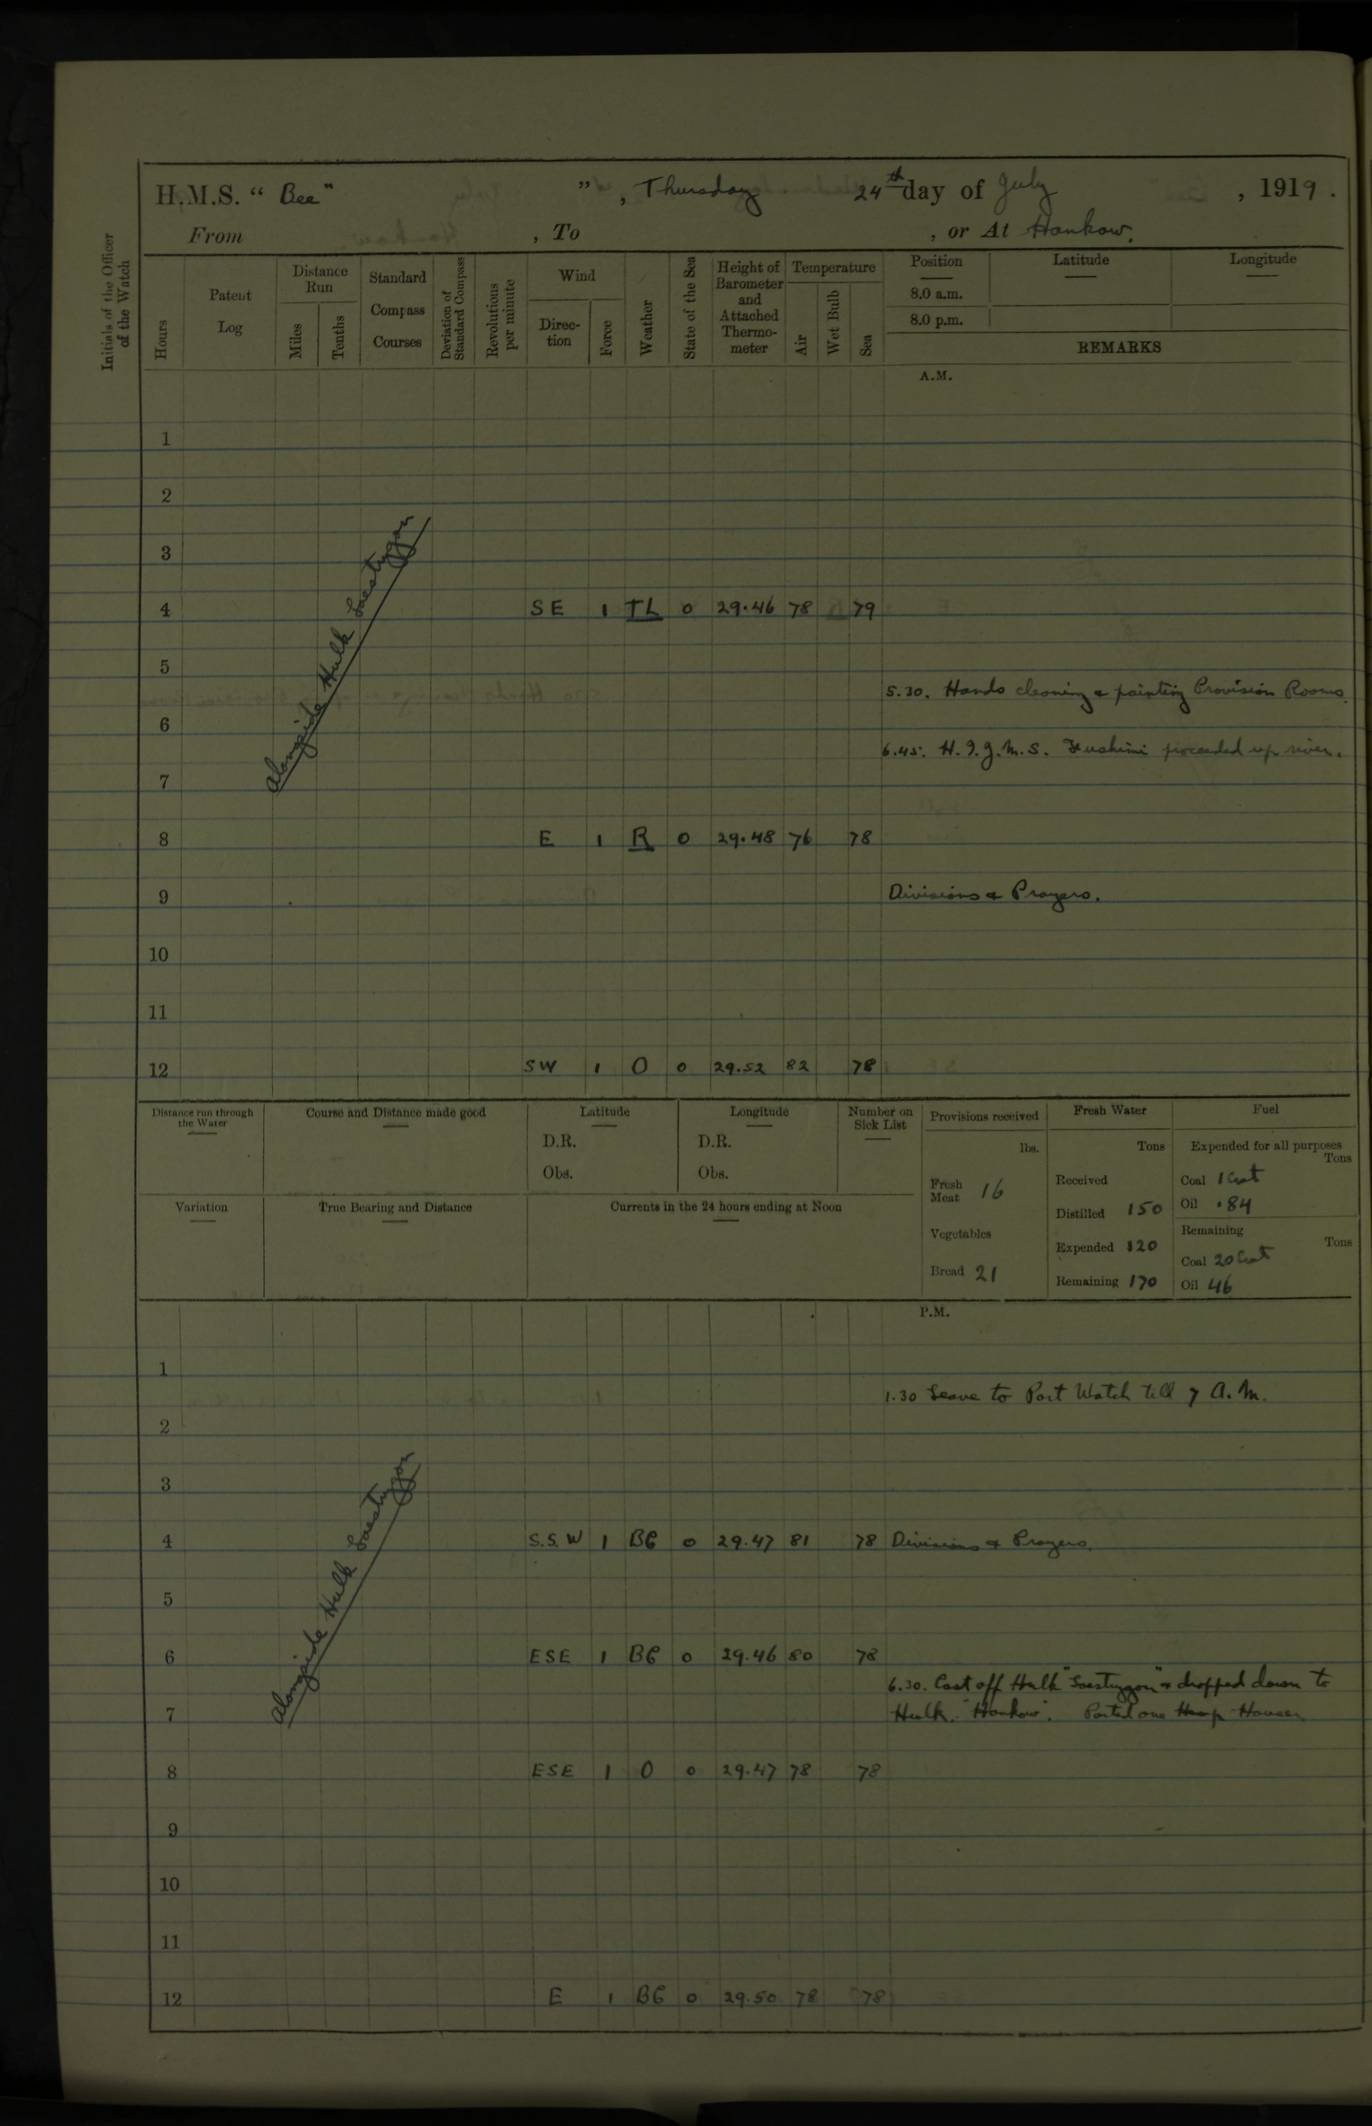 H.M.S. “ Bee” ”, Thursday 24th day of July , 1919.
From , To , or At Hankow.
Initials of the Officer of the Watch
Hours
Patent Log
Distance Run
Miles
Tenths
Standard Compass Courses
Deviation of Standard Compass
Revolutions per minute
Wind
Direction
Force
Weather
State of the Sea
Height of Barometer and Attached Thermometer
Temperature
Air
Wet Bulb
Sea
Position
8.0 a.m.
8.0 p.m.
Latitude
Longitude
REMARKS
A.M.
1
2
3
Alongside Hulk Loestrygon
4 SE 1 TL 0 29.46 78 79
5
5.30. Hands cleaning & painting Provision Rooms.
6
6.45. H.I.J.M.S. Fushimi proceeded up river.
7
8 E 1 R 0 29.48 76 78
9 Divisions & Prayers.
10
11
12 SW 1 O 0 29.52 82 78
Distance run through the Water
Course and Distance made good
Latitude
D.R.
Obs.
Longitude
D.R.
Obs.
Number on Sick List
Variation
True Bearing and Distance
Currents in the 24 hours ending at Noon
Provisions received
lbs.
Fresh Meat 16
Vegetables
Bread 21
Fresh Water
Tons
Received
Distilled 150
Expended 120
Remaining 170
Fuel
Expended for all purposes
Tons
Coal 1 Cwt
Oil .84
Remaining
Tons
Coal 20 Cwt
Oil 46
P.M.
1
1.30 Leave to Port Watch till 7 A.M.
2
3
Alongside Hulk Loestrygon
4 S.S.W 1 BC 0 29.47 81 78 Divisions & Prayers.
5
6 ESE 1 BC 0 29.46 80 78
6.30. Cast off Hulk "Loestrygon" & dropped down to
7 Hulk. "Hankow". Parted one Hemp Hawser
8 ESE 1 O 0 29.47 78 78
9
10
11
12 E 1 BC 0 29.50 78 78